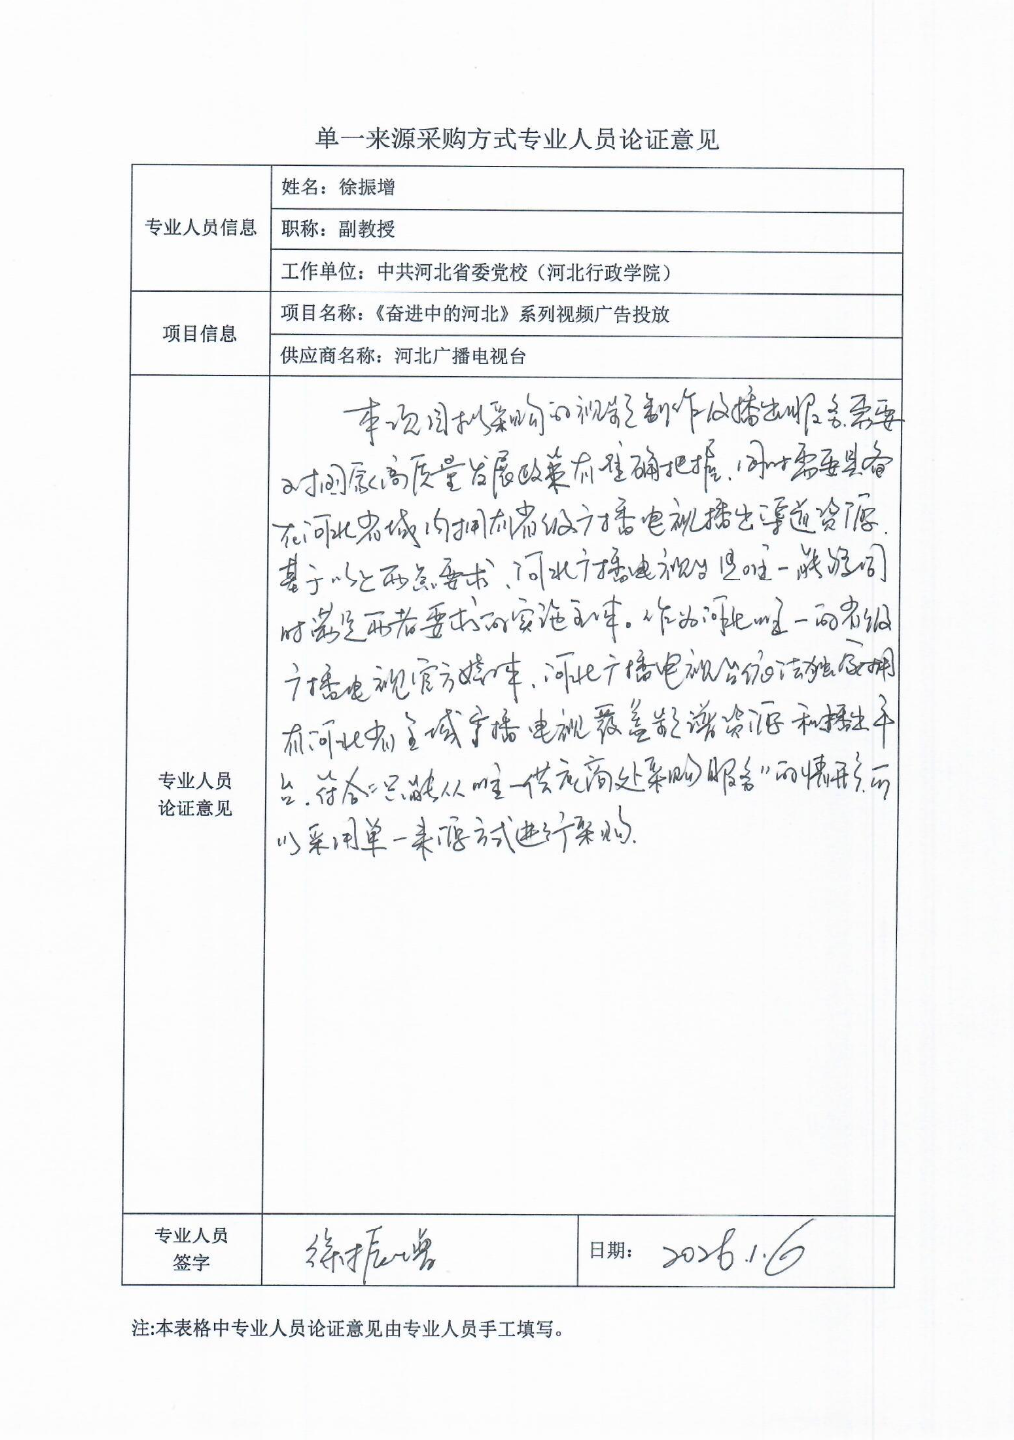 单一来源采购方式专业人员论证意见
专业人员信息
姓名：徐振增
职称：副教授
工作单位：中共河北省委党校（河北行政学院）
项目信息
项目名称：《奋进中的河北》系列视频广告投放
供应商名称：河北广播电视台
专业人员
论证意见
本项目拟采购的视频制作及播出服务需要
对国家高质量发展政策有准确把握，同时需要具备
在河北省域内拥有省级广播电视播出渠道资源。
基于以上两点要求，河北广播电视台是唯一能够同
时满足两者要求的实施主体。作为河北唯一的省级
广播电视官方媒体，河北广播电视台依法独家拥
有河北省全域广播电视覆盖频谱资源和播出平
台，符合“只能从唯一供应商处采购服务”的情形，可
以采用单一来源方式进行采购。
专业人员
签字
徐振增
日期：
2026.1.6
注:本表格中专业人员论证意见由专业人员手工填写。